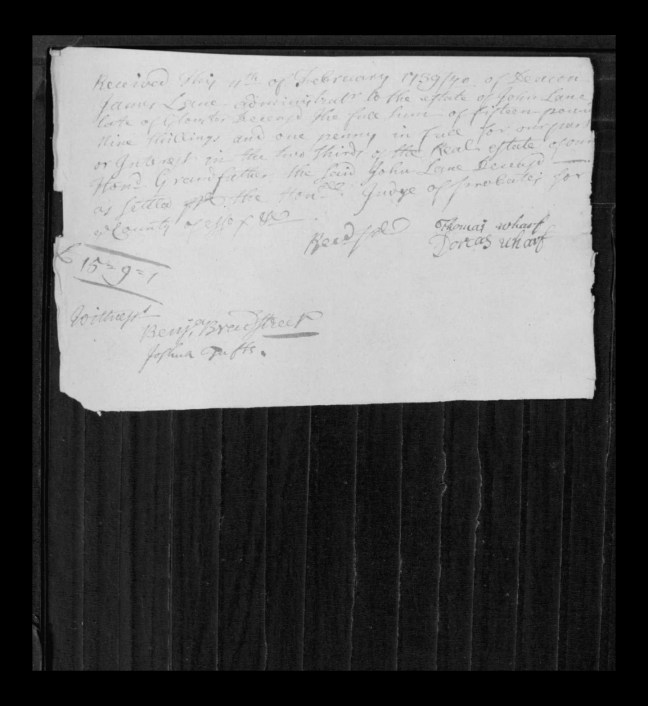 Received this 11th of February 1739/40 of Deacon
James Lane administratr to the estate of John Lane
late of Gloucester Deceasd the full sume of fifteen pounds
Nine shillings and one penny in full for our part
or Interest in the two thirds of the Real estate of our
Hond Grandfather the said John Lane Deceasd
as settled the Honble Judge of Probates for
County of Essex
Recd Thomas Wharf
Dorcas Wharf
£ 15=9=1
Witness
Benjn Bradstreet
Joshua Tufts.